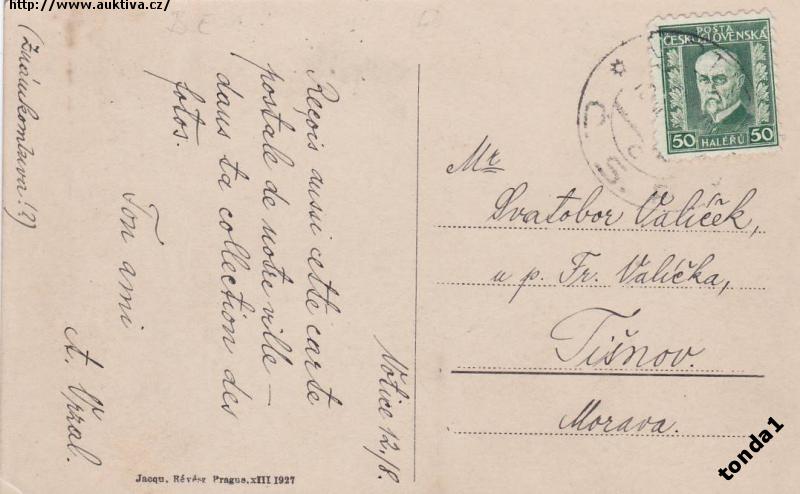 http://www.auktiva.cz/
(Známkomluva!?)
Votice 12./8.
Reçois aussi ceste carte
postale de notre ville –
dans ta collection des
fotos.
Ton ami
A. Vrzal.
POŠTA
ČESKOSLOVENSKÁ
50 HALÉŘŮ 50
Mr
Svatobor Valíček,
u p. Fr. Valíčka,
Tišnov.
Morava.
Jacqu. Révész Prague, XIII 1927
tonda1